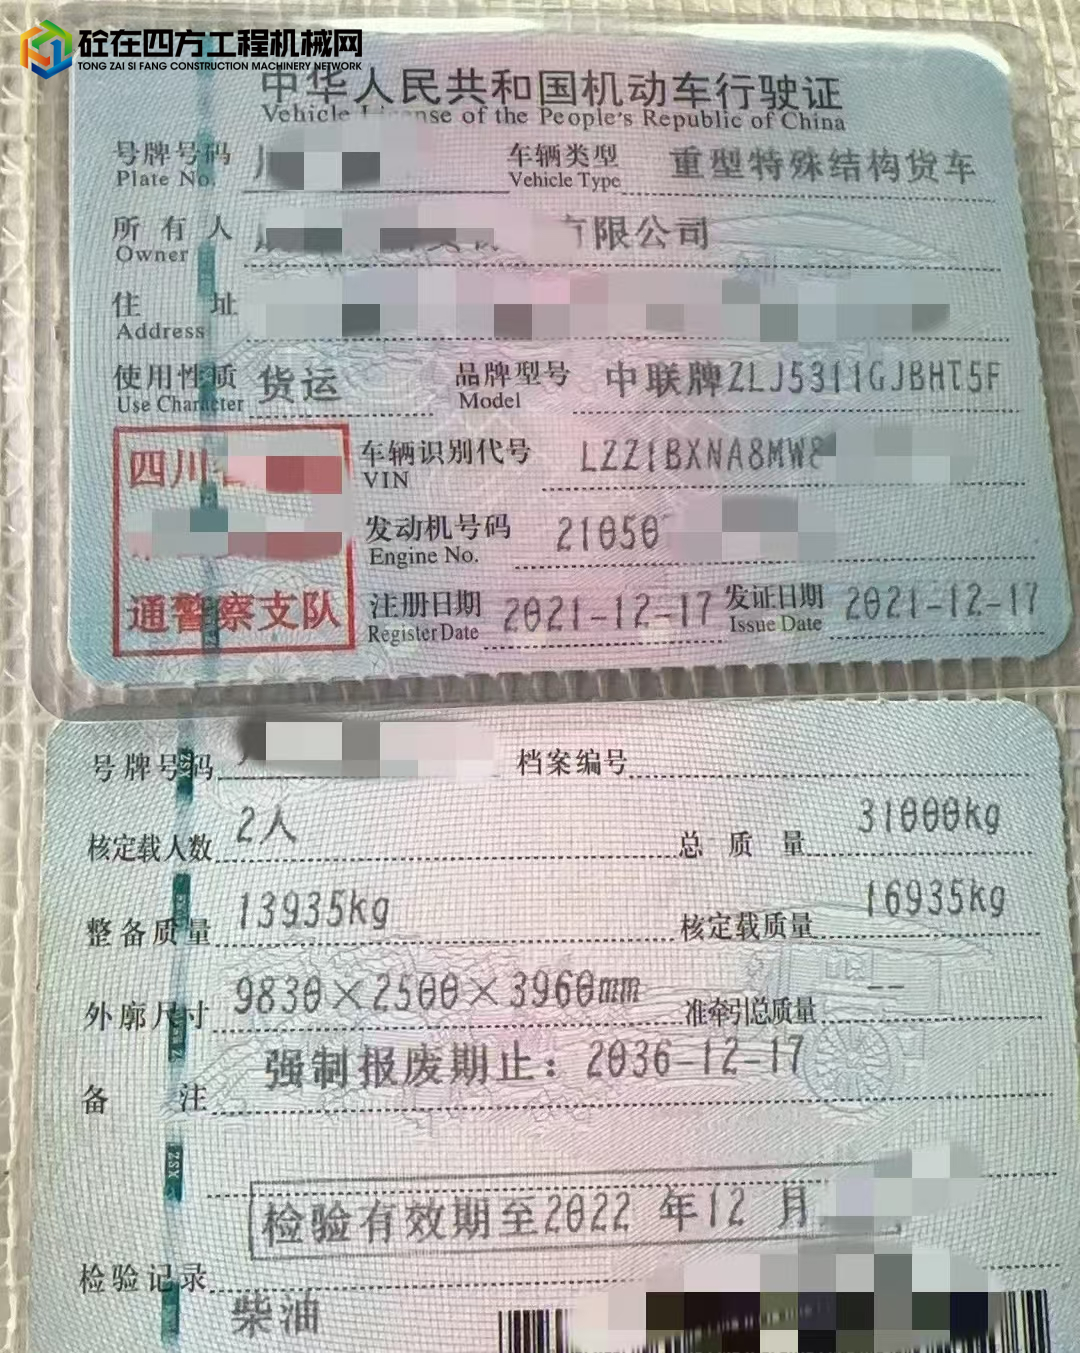 砼在四方工程机械网
TONG ZAI SI FANG CONSTRUCTION MACHINERY NETWORK
中华人民共和国机动车行驶证
Vehicle License of the People's Republic of China
号牌号码 车辆类型 重型特殊结构货车
Plate No. Vehicle Type
所有人 有限公司
Owner
住址
Address
使用性质 货运 品牌型号 中联牌ZLJ5311GJBHT5F
Use Character Model
四川 车辆识别代号 LZZ1BXNA8MW8
VIN
发动机号码 21050
Engine No.
通警察支队 注册日期 2021-12-17 发证日期 2021-12-17
Register Date Issue Date
号牌号码 档案编号
核定载人数 2人 总质量 31000kg
整备质量 13935kg 核定载质量 16935kg
外廓尺寸 9830×2500×3960mm 准牵引总质量 --
备注 强制报废期止：2036-12-17
检验有效期至2022 年12 月
检验记录
柴油
XSZ